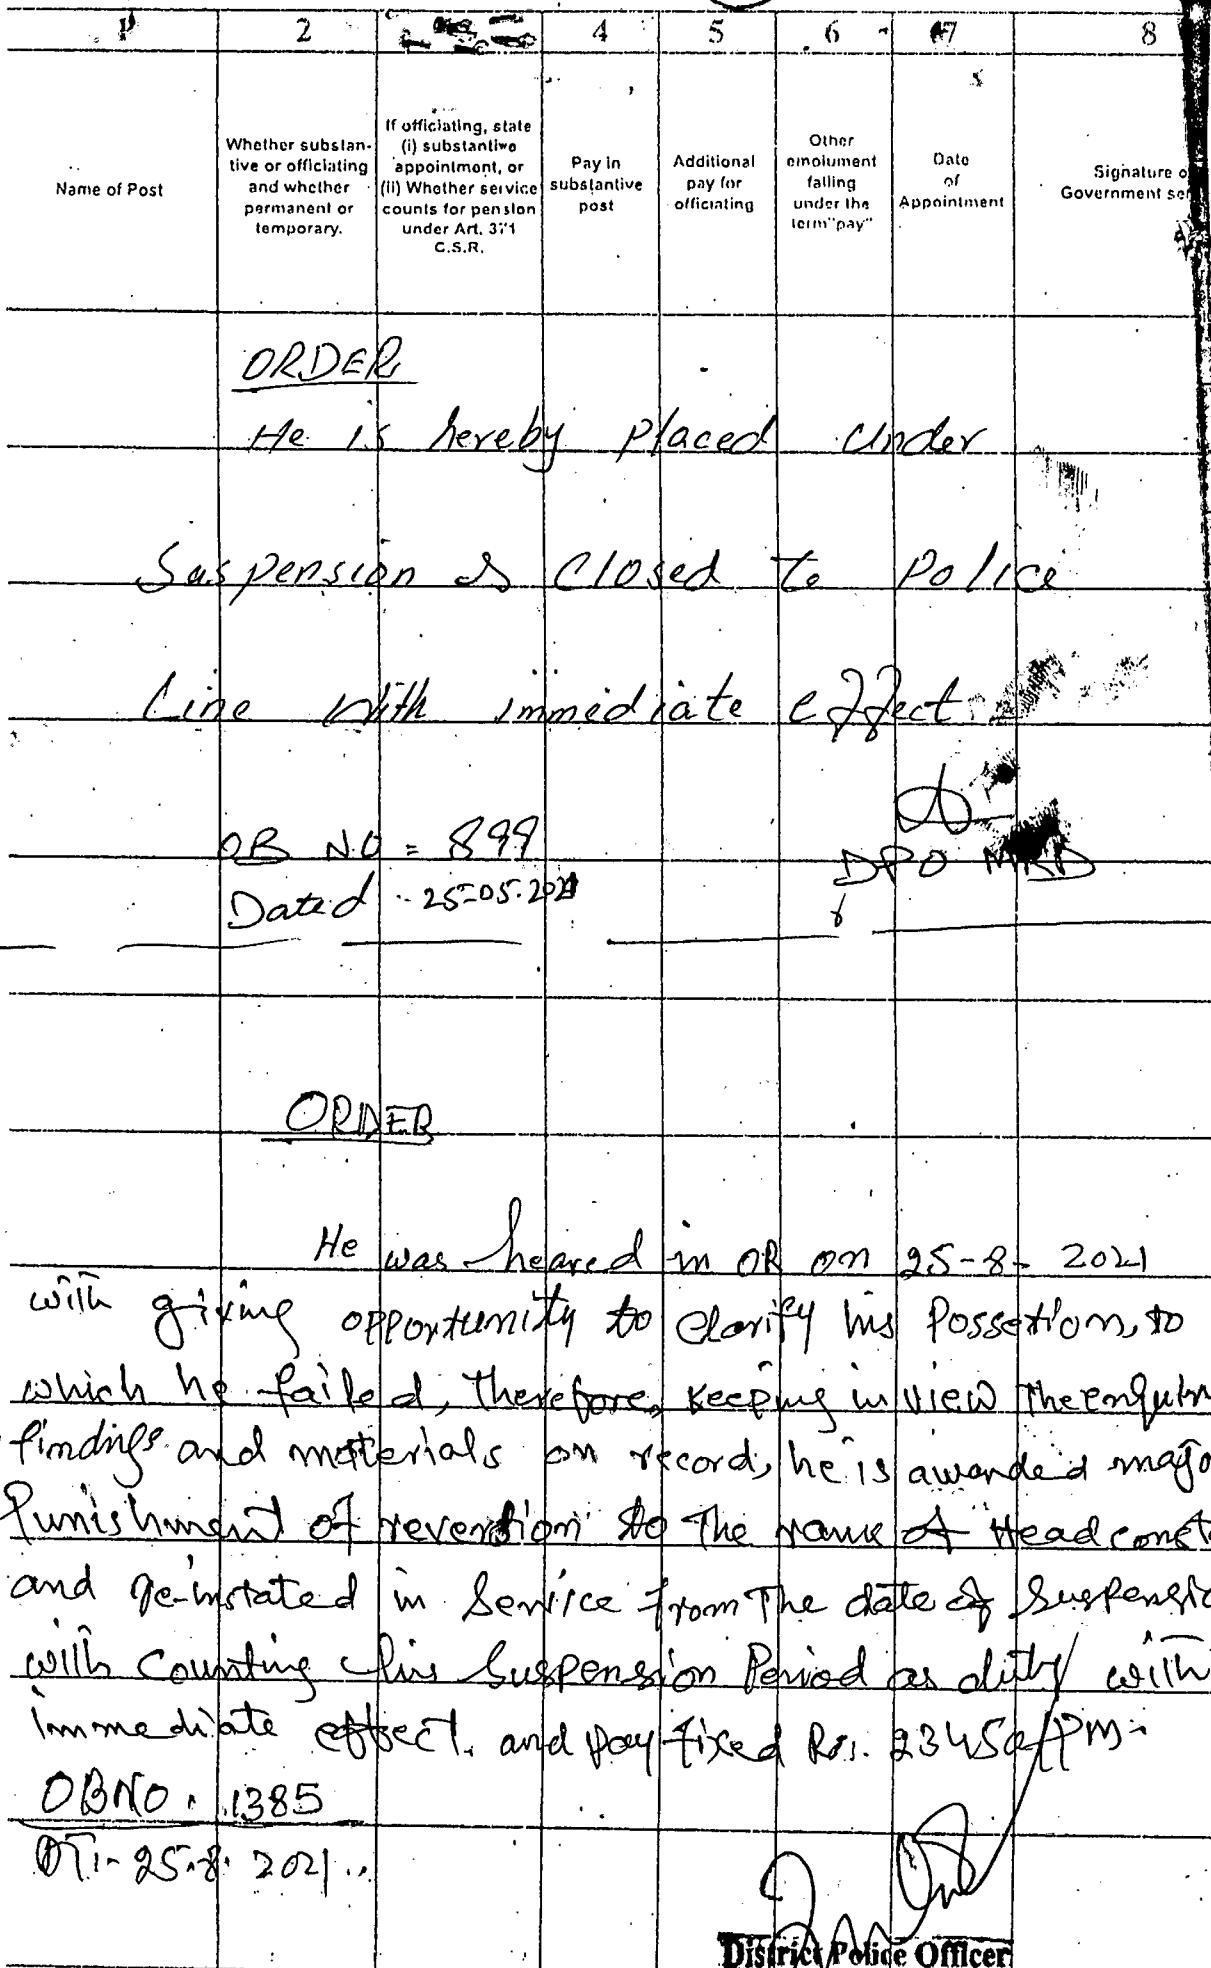 1 2 4 5 6 7 8
Name of Post
Whether substan-
tive or officiating
and whether
permanent or
temporary.
If officiating, state
(i) substantive
appointment, or
(ii) Whether service
counts for pension
under Art. 371
C.S.R.
Pay in
substantive
post
Additional
pay for
officiating
Other
emolument
falling
under the
term "pay"
Date
of
Appointment
Signature o
Government ser
ORDER
He is hereby Placed Under
Suspension & Closed To Police
Line With immediate effect
OB NO = 899
DPO MRD
Dated 25-05-2021
ORDER
He was heared in OR on 25-8-2021
with giving opportunity to clarify his Possetion, to
which he failed, therefore, keeping in view The enquiry
findings and materials on record, he is awarded majo
Punishment of reversion to The rank of Head const
and re-instated in Service from The date of Suspensio
with counting his Suspension Period as duty with
immediate effect. and pay fixed Rs. 23450/PM-
OBNO. 1385
DT:- 25.8.2021
District Police Officer